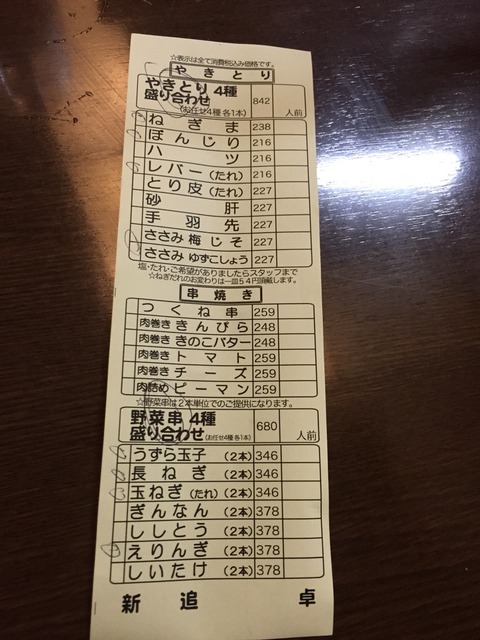 ☆表示は全て消費税込み価格です。
やきとり
やきとり 4種
盛り合わせ 842 人前
(お任せ4種 各1本)
ねぎま 238
ぼんじり 216
ハツ 216
レバー(たれ) 216
とり皮(たれ) 227
砂肝 227
手羽先 227
ささみ 梅じそ 227
ささみ ゆずこしょう 227
塩・たれ・ご希望がありましたらスタッフまで
☆ねぎだれのお変わりは一皿54円頂戴します。
串焼き
つくね串 259
肉巻き きんぴら 248
肉巻き きのこバター 248
肉巻き トマト 259
肉巻き チーズ 259
肉詰め ピーマン 259
☆野菜串は2本単位でのご提供になります。
野菜串 4種
盛り合わせ (お任せ4種 各1本) 680 人前
うずら玉子 (2本) 346
長ねぎ (2本) 346
玉ねぎ(たれ) (2本) 346
ぎんなん (2本) 378
ししとう (2本) 378
えりんぎ (2本) 378
しいたけ (2本) 378
新 追 卓